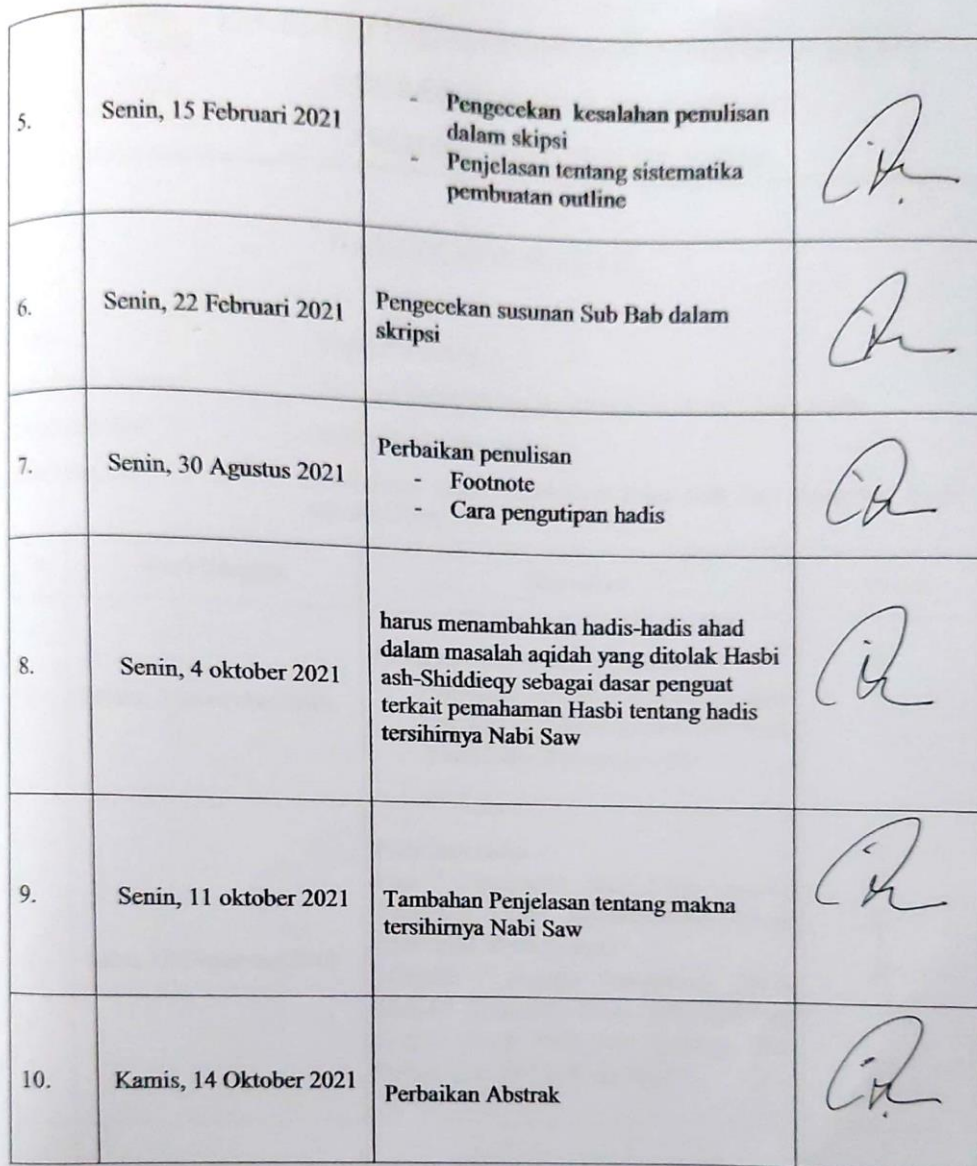 5.
Senin, 15 Februari 2021
- Pengecekan kesalahan penulisan
dalam skipsi
- Penjelasan tentang sistematika
pembuatan outline
6.
Senin, 22 Februari 2021
Pengecekan susunan Sub Bab dalam
skripsi
7.
Senin, 30 Agustus 2021
Perbaikan penulisan
- Footnote
- Cara pengutipan hadis
8.
Senin, 4 oktober 2021
harus menambahkan hadis-hadis ahad
dalam masalah aqidah yang ditolak Hasbi
ash-Shiddieqy sebagai dasar penguat
terkait pemahaman Hasbi tentang hadis
tersihirnya Nabi Saw
9.
Senin, 11 oktober 2021
Tambahan Penjelasan tentang makna
tersihirnya Nabi Saw
10.
Kamis, 14 Oktober 2021
Perbaikan Abstrak